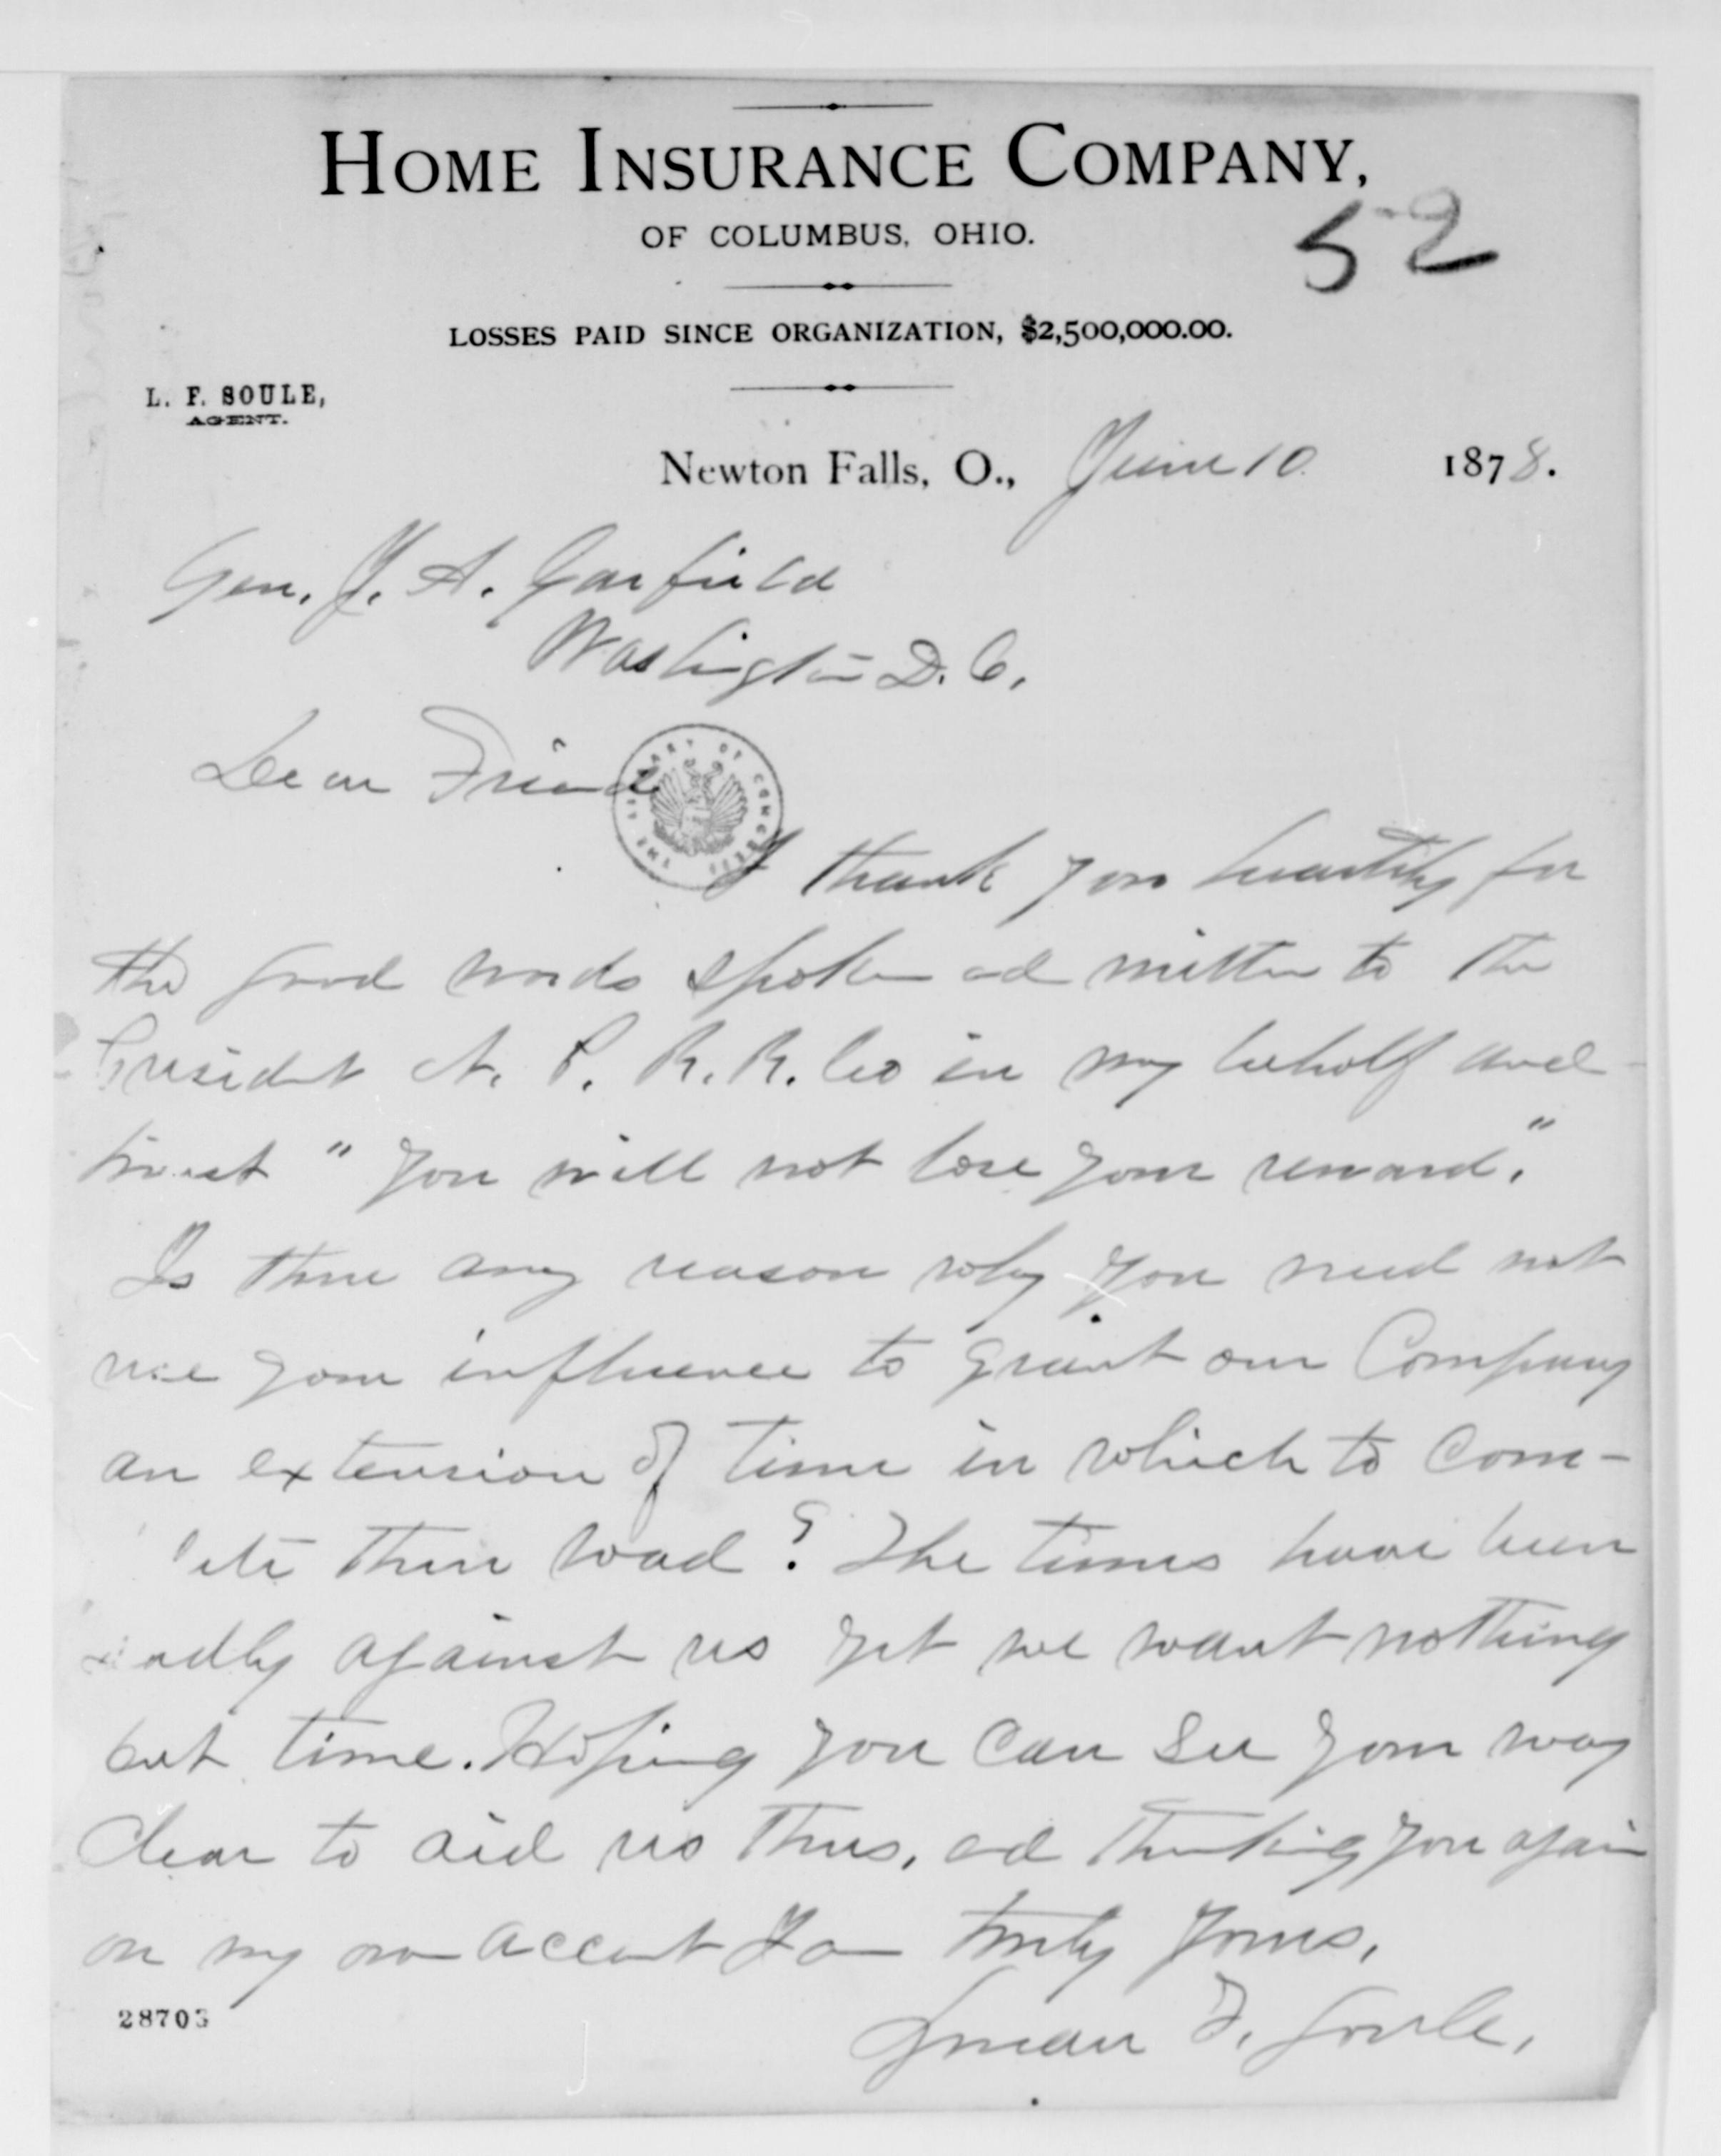 HOME INSURANCE COMPANY,
OF COLUMBUS, OHIO.
52
LOSSES PAID SINCE ORGANIZATION, $2,500,000.00.
L. F. SOULE,
AGENT.
Newton Falls, O., June 10 1878.
Gen. J. A. Garfield
Washington D. C.
Dear Friend
THE LIBRARY OF CONGRESS
I thank you heartily for
the good words spoken and written to the
President N. P. R. R. Co in my behalf and
trust "you will not lose your reward."
Is there any reason why you need not
use your influence to grant our Company
an extension of time in which to com-
lete their road? The times have been
adly against us yet we want nothing
but time. Hoping you can see your way
clear to aid us thus, and thanking you again
on my own account I am truly yours,
Lyman F. Soule.
28703